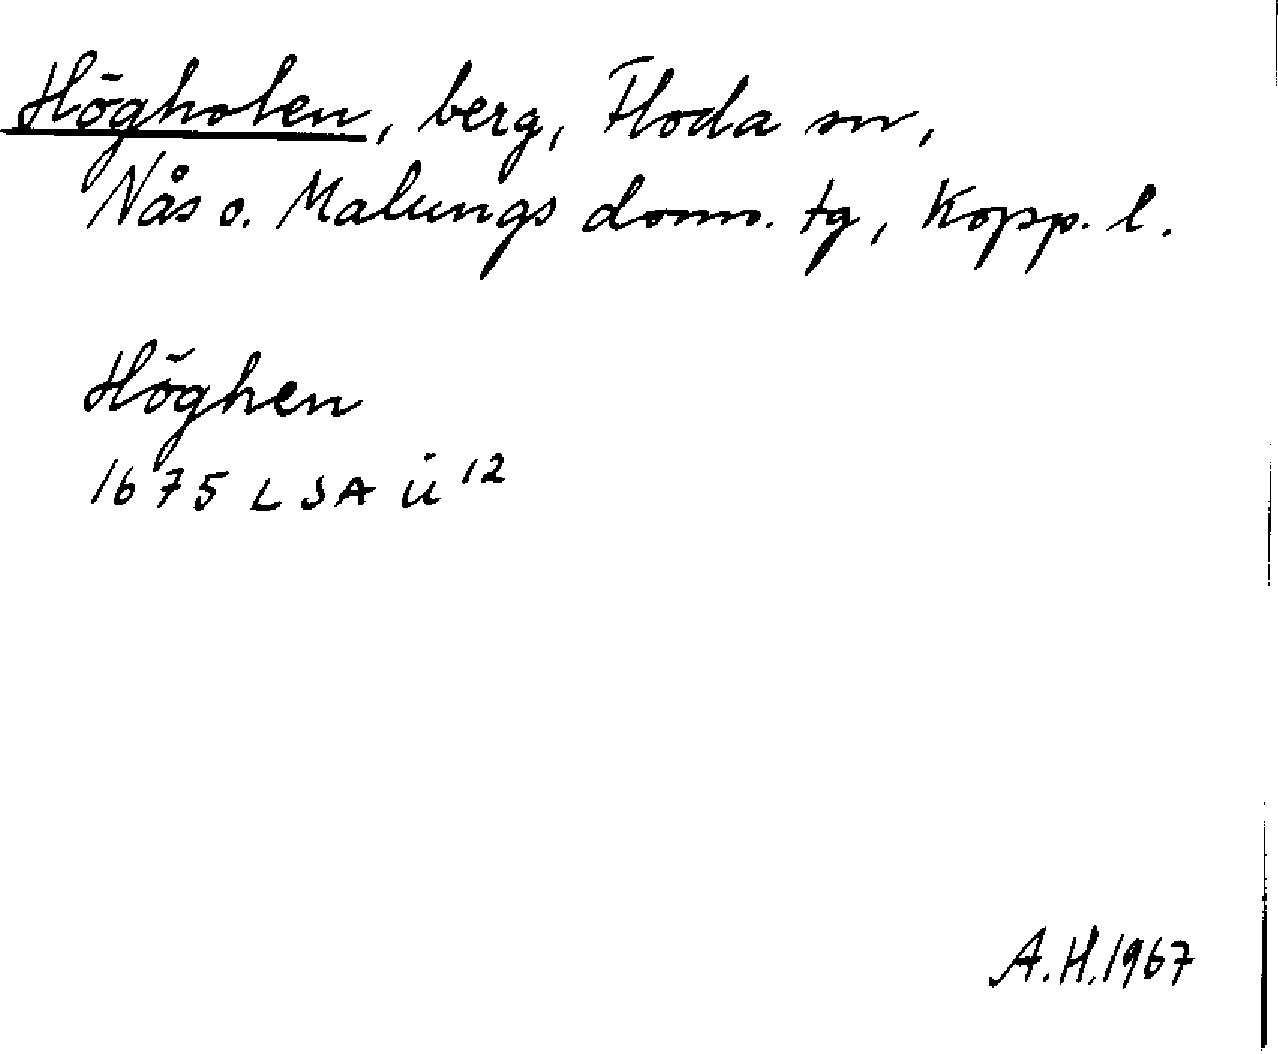 Högholen, berg, Floda sn,
Nås o. Malungs doms. tg, Kopp. l.
Höghen
1675 LSA ü 12
A.H. 1967